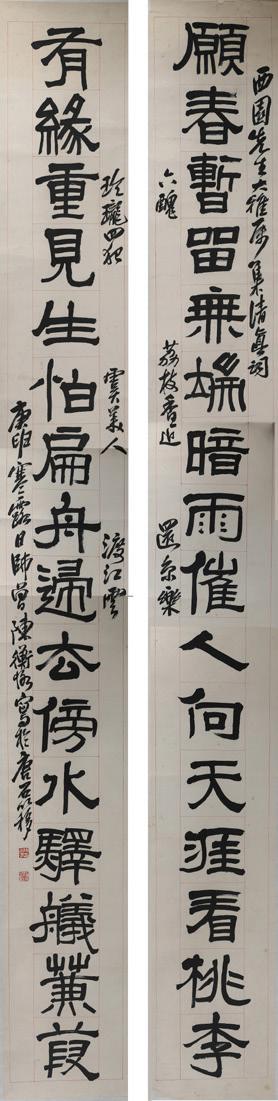 西園先生大雅屬集清真詞
願春暫留無端暗雨催人向天涯看桃李
六醜 荔枝香近 還京樂
玲瓏四犯 虞美人 渡江雲
有緣重見生怕扁舟歸去傍水驛艤蒹葭
庚申寒露日師曾陳衡恪寫於唐石簃